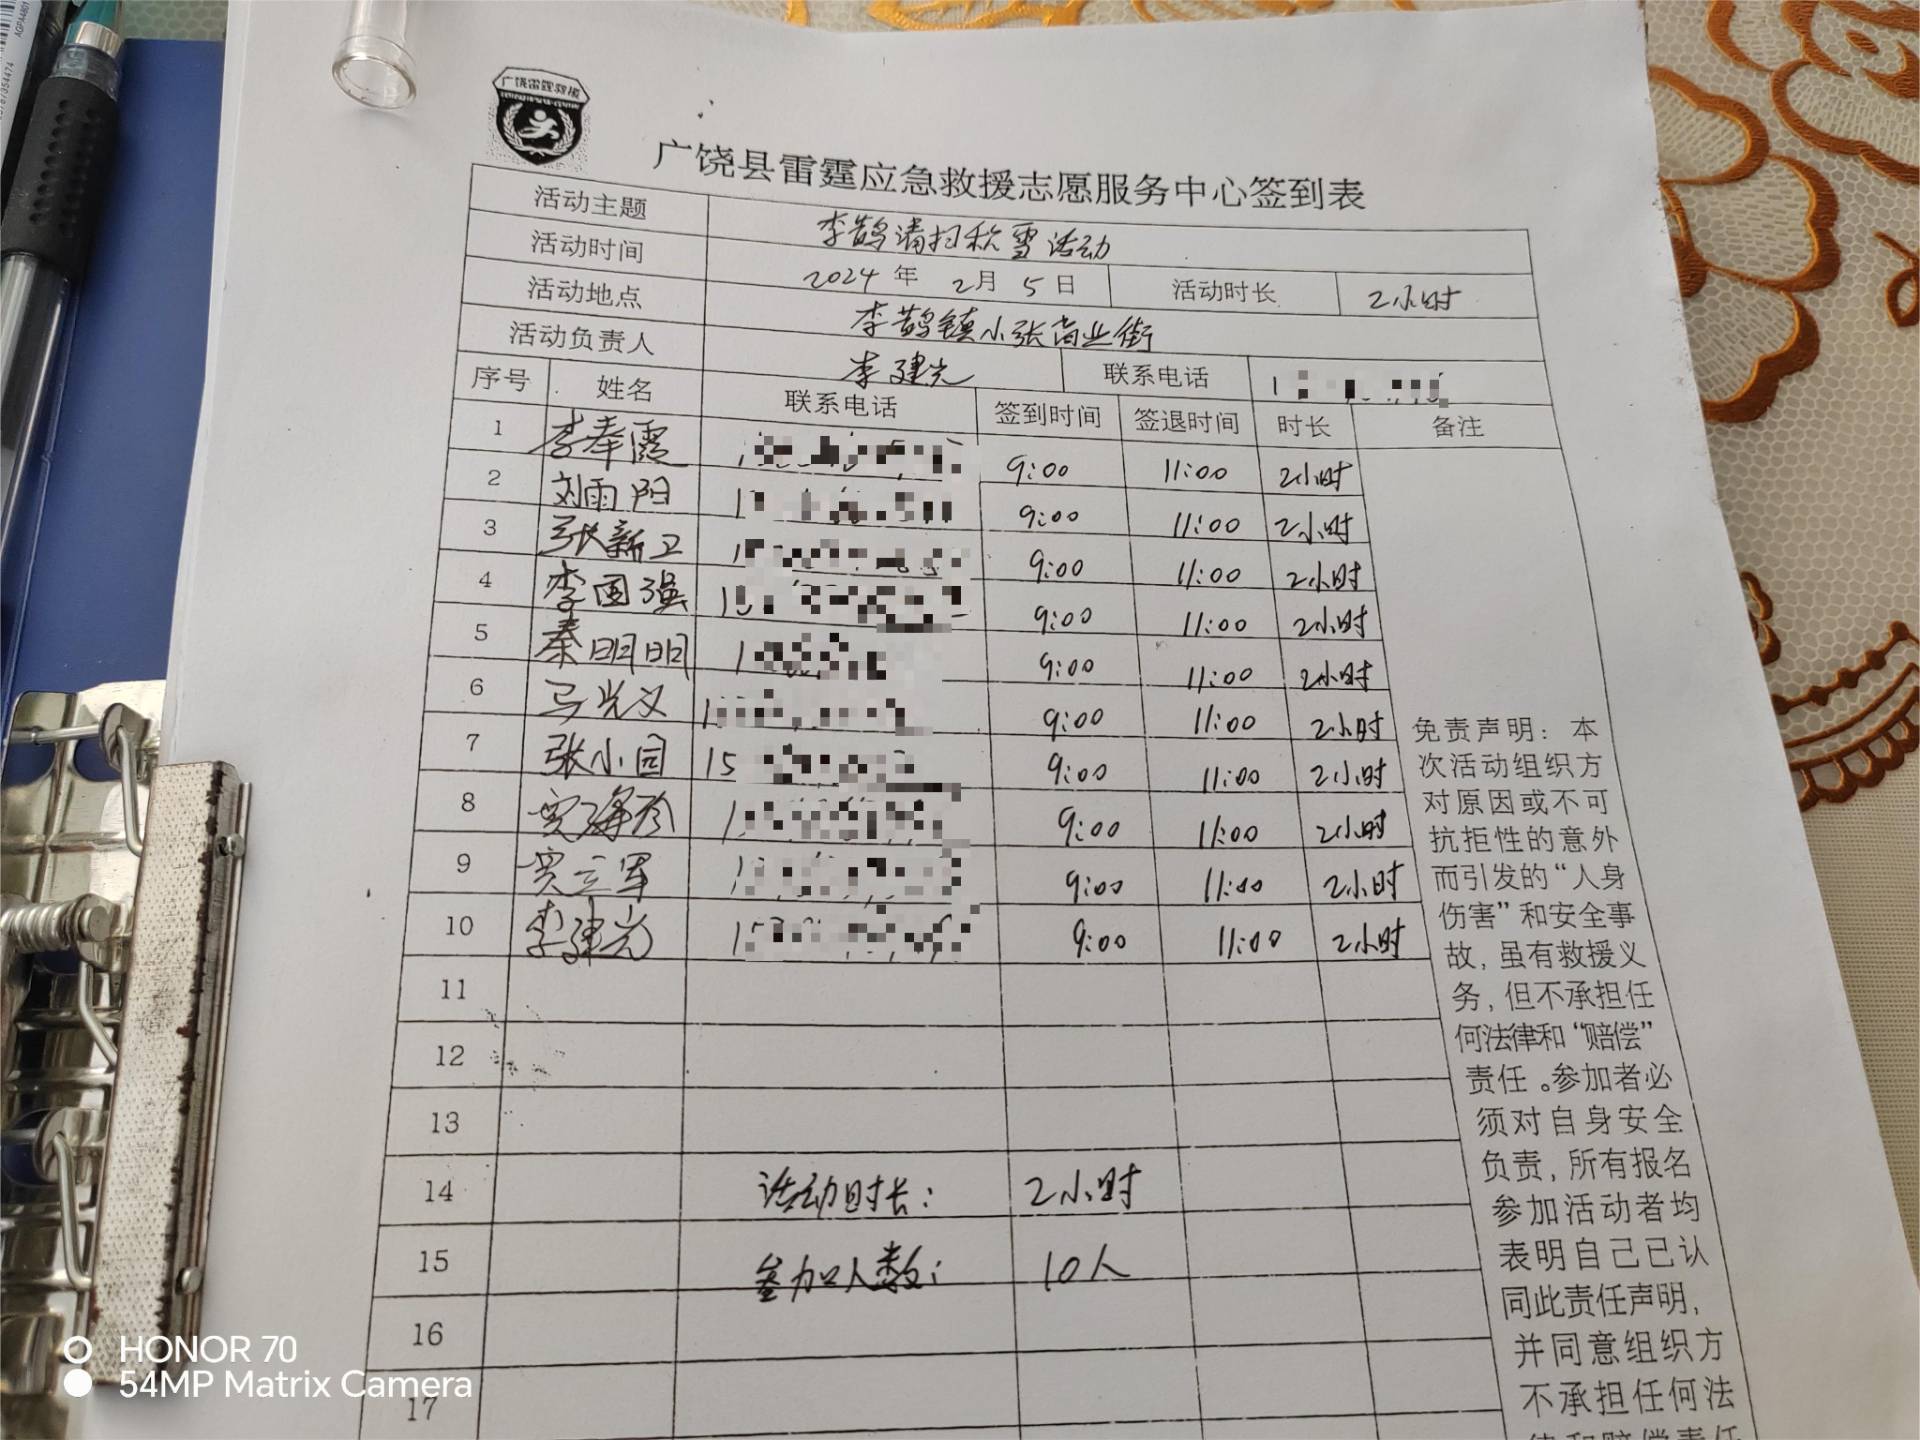 广饶雷霆救援
广饶县雷霆应急救援志愿服务中心签到表
活动主题 李鹊清扫积雪活动
活动时间 2024年 2月 5日 活动时长 2小时
活动地点 李鹊镇小张商业街
活动负责人 李建光 联系电话 1
序号 姓名 联系电话 签到时间 签退时间 时长 备注
1 李奉霞 9:00 11:00 2小时
2 刘雨阳 9:00 11:00 2小时
3 张新卫 9:00 11:00 2小时
4 李国强 9:00 11:00 2小时
5 秦明明 9:00 11:00 2小时
6 马光义 9:00 11:00 2小时
7 张小园 15 9:00 11:00 2小时
8 9:00 11:00 2小时
9 贾立军 9:00 11:00 2小时
10 李建光 9:00 11:00 2小时
11
12
13
14 活动时长: 2小时
15 参加人数: 10人
16
17
免责声明：本
次活动组织方
对原因或不可
抗拒性的意外
而引发的“人身
伤害”和安全事
故，虽有救援义
务，但不承担任
何法律和“赔偿”
责任。参加者必
须对自身安全
负责，所有报名
参加活动者均
表明自己已认
同此责任声明，
并同意组织方
不承担任何法
律和赔偿责任
HONOR 70
54MP Matrix Camera